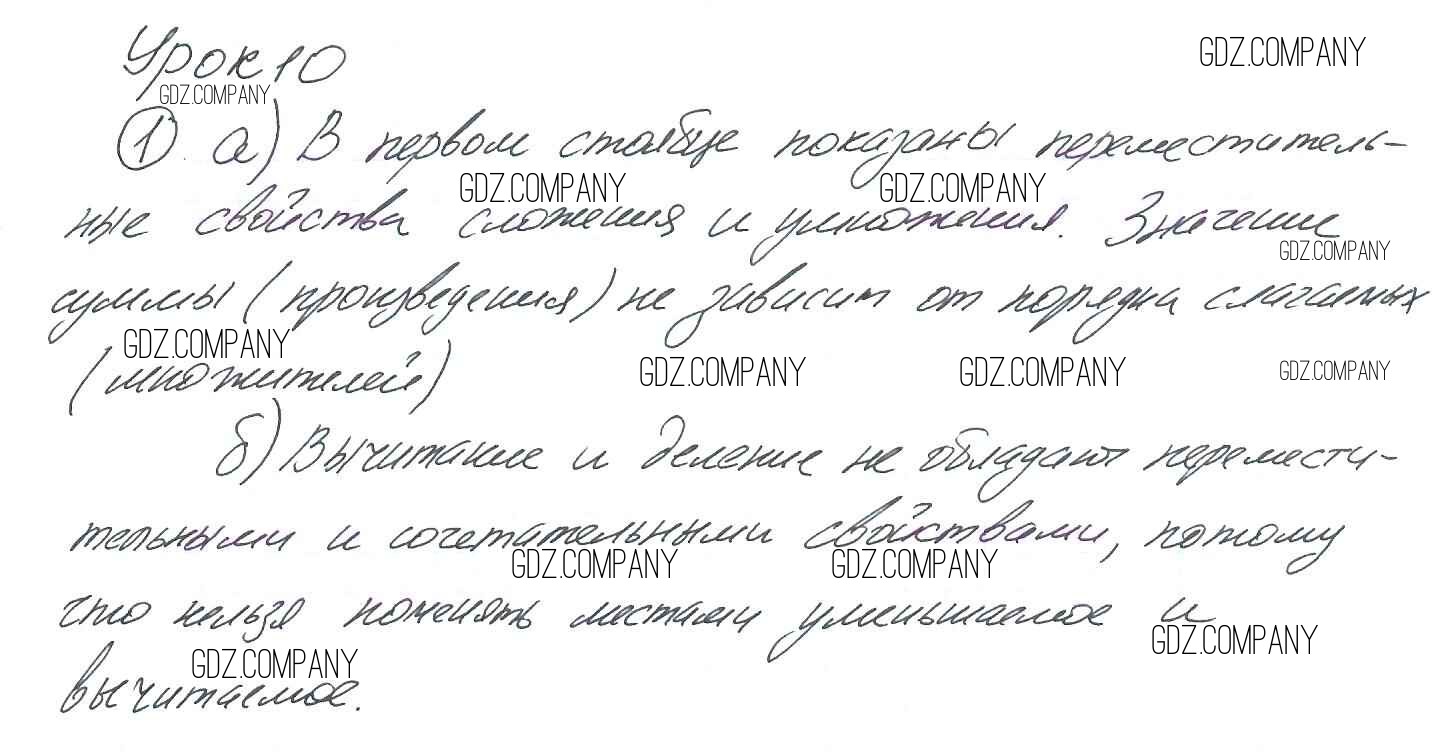 Урок 10
GDZ.COMPANY
GDZ.COMPANY
1 а) В первом столбце показаны переместитель-
GDZ.COMPANY GDZ.COMPANY
ные свойства сложения и умножения. Значение
GDZ.COMPANY
суммы (произведения) не зависит от порядка слагаемых
GDZ.COMPANY GDZ.COMPANY GDZ.COMPANY GDZ.COMPANY
(множителей)
б) Вычитание и деление не обладают перемести-
тельными и сочетательными свойствами, потому
GDZ.COMPANY GDZ.COMPANY
что нельзя поменять местами уменьшаемое и
GDZ.COMPANY GDZ.COMPANY
вычитаемое.